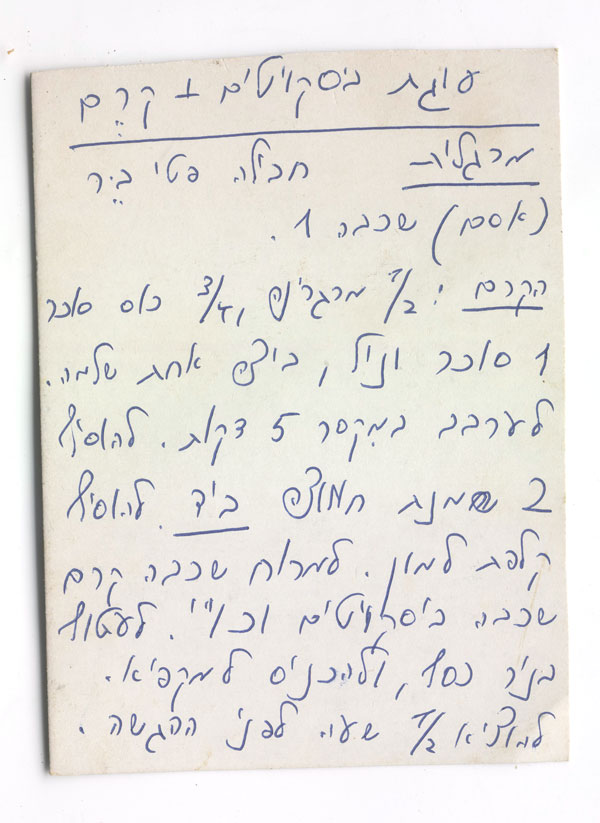 עוגת ביסקויטים + קרֶם
מרגלית חבילה פטי בֵּר
(אסם) שכבה 1.
הקרם: 1/2 מרגרינה, 3/4 כוס סוכר
1 סוכר וניל, ביצה אחת שלמה.
לערבב במִקסר 5 דקות. להוסיף
2 שמנת חמוצה ביד. להוסיף
קלפת למון. למרוח שכבה קרם
שכבה ביסקויטים וכו'". לעטוף
בניר כסף, ולהכניס למקפיא.
להוציא 1/2 שעה לפני ההגשה.